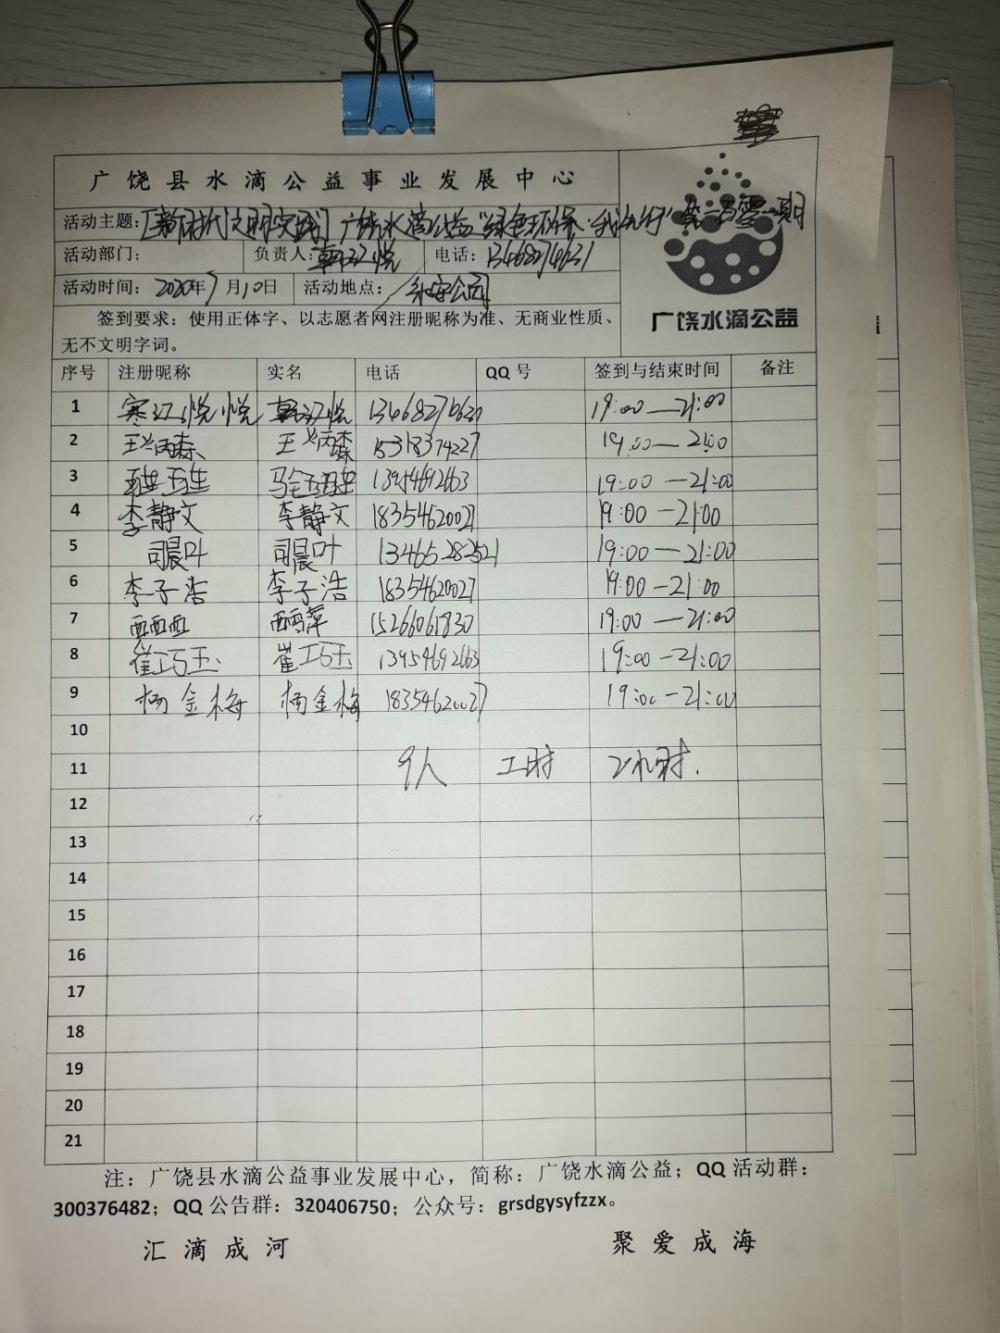 广饶县水滴公益事业发展中心
活动主题：[新时代文明实践]广饶水滴公益"绿色环保·我先行"第一百零一期
活动部门： 负责人：韩江悦 电话：13468274631
活动时间：2020年7月10日 活动地点：永安公司
广饶水滴公益
签到要求：使用正体字、以志愿者网注册昵称为准、无商业性质、
无不文明字词。
序号 注册昵称 实名 电话 QQ号 签到与结束时间 备注
1 寒江悦悦 韩江悦 19:00—21:00
2 王兰丙森 王兰丙森 15318374227 19:00—21:00
3 13954692663 19:00—21:00
4 李静文 李静文 18354620027 19:00—21:00
5 司晨叶 司晨叶 13465282521 19:00—21:00
6 李子浩 李子浩 18354620027 19:00—21:00
7 15266061830 19:00—21:00
8 崔巧玉 崔巧玉 13954692663 19:00—21:00
9 杨金梅 杨金梅 18354620027 19:00—21:00
10
11 9人 工时 2小时.
12
13
14
15
16
17
18
19
20
21
注：广饶县水滴公益事业发展中心，简称：广饶水滴公益；QQ活动群：
300376482；QQ公告群：320406750；公众号：grsdgysyfzzx。
汇滴成河 聚爱成海